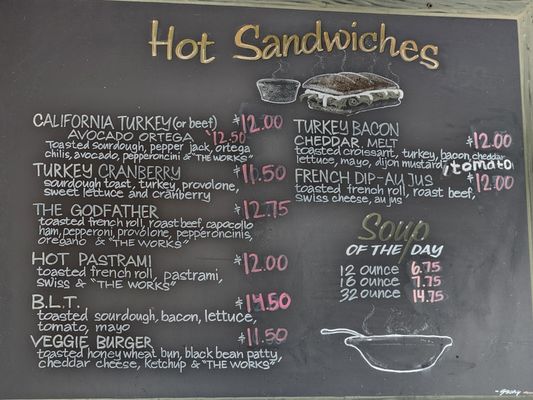 Hot Sandwiches
CALIFORNIA TURKEY (or beef) $12.00
AVOCADO ORTEGA $12.50
Toasted sourdough, pepper jack, ortega
chilis, avocado, pepperoncini & "THE WORKS"
TURKEY CRANBERRY $11.50
sourdough toast, turkey, provolone,
sweet lettuce and cranberry
THE GODFATHER $12.75
toasted french roll, roast beef, capocollo
ham, pepperoni, provolone, pepperoncinis,
oregano & "THE WORKS"
HOT PASTRAMI $12.00
toasted french roll, pastrami,
swiss & "THE WORKS"
B.L.T. $11.50
toasted sourdough, bacon, lettuce,
tomato, mayo
VEGGIE BURGER $11.50
toasted honey wheat bun, black bean patty
cheddar cheese, ketchup & "THE WORKS"
TURKEY BACON
CHEDDAR MELT $12.00
toasted croissant, turkey, bacon, cheddar
lettuce, mayo, dijon mustard, tomato
FRENCH DIP-AU JUS $12.00
toasted french roll, roast beef,
swiss cheese, au jus
Soup
OF THE DAY
12 ounce 6.75
16 ounce 7.75
32 ounce 14.75